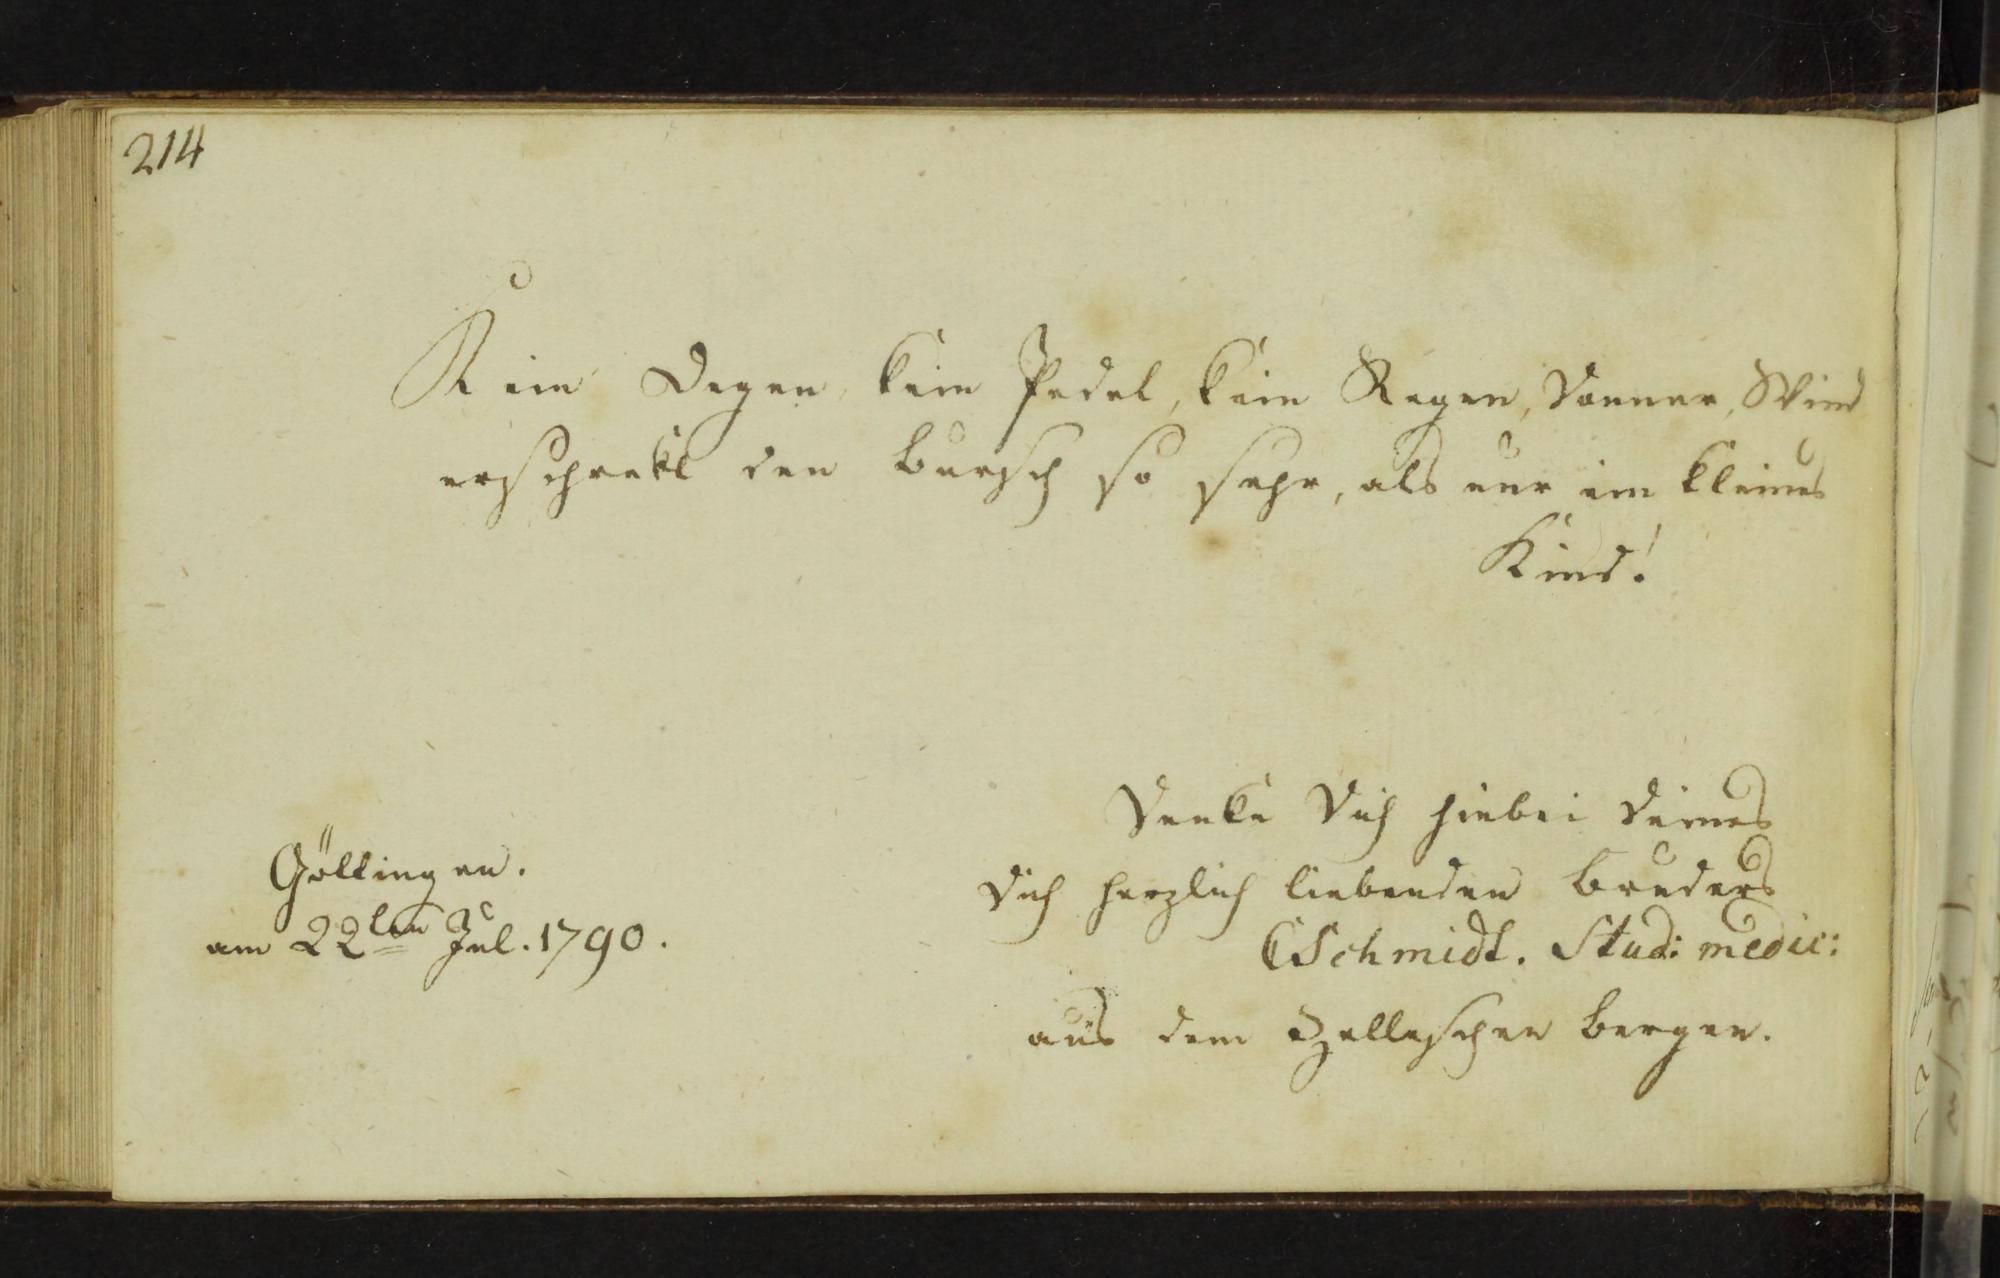 214
Kein Degen, kein Pedel, kein Regen, Donner, Wind
erschrekt den Bursch so sehr, als nur ein kleines
Kind!
Denke Dich hiebei Deines
Dich herzlich liebenden Bruders
CSchmidt. Stud: medic:
aus dem Zelleschen Bergen.
Göttingen.
am 22ten Jul. 1790.